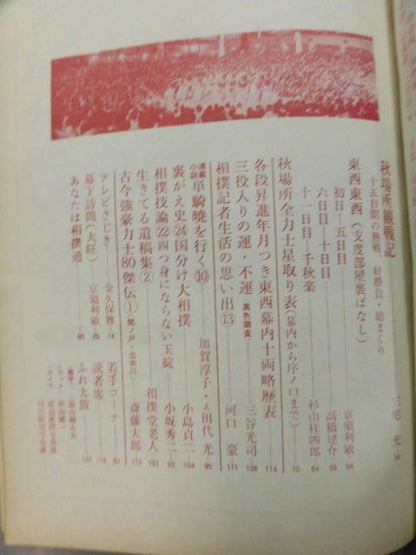 秋場所熱戦記
十五日間の熱戦、好勝負・総まくり
三宅 充
東西東西（支度部屋裏ばなし）
初日―五日目 京須利敏 54
六日目―十日目 高橋建介 59
十一日目―千秋楽 杉山桂四郎 64
秋場所全力士星取り表（幕内から序ノ口まで） 70
各段昇進年月つき東西幕内十両略歴表 114
三役入りの運・不運 異色調査 三谷光司 108
相撲記者生活の思い出⑬ 河口 豪 111
連載小説 単騎暁を行く⑩ 加賀淳子・え田代 光 95
裏がえ史㉔国分け大相撲 小島貞二 104
相撲技論㉒四つ身にならない玉碇 小坂秀二 92
生きてる遺稿集② 相撲堂老人
古今強豪力士80傑伝① 斎藤太郎
テレビさじき 金久保雅 74
幕下訪問（大旺） 京須利敏 79
あなたは相撲通 90
若手コーナー
読者席 116
ふれ太鼓